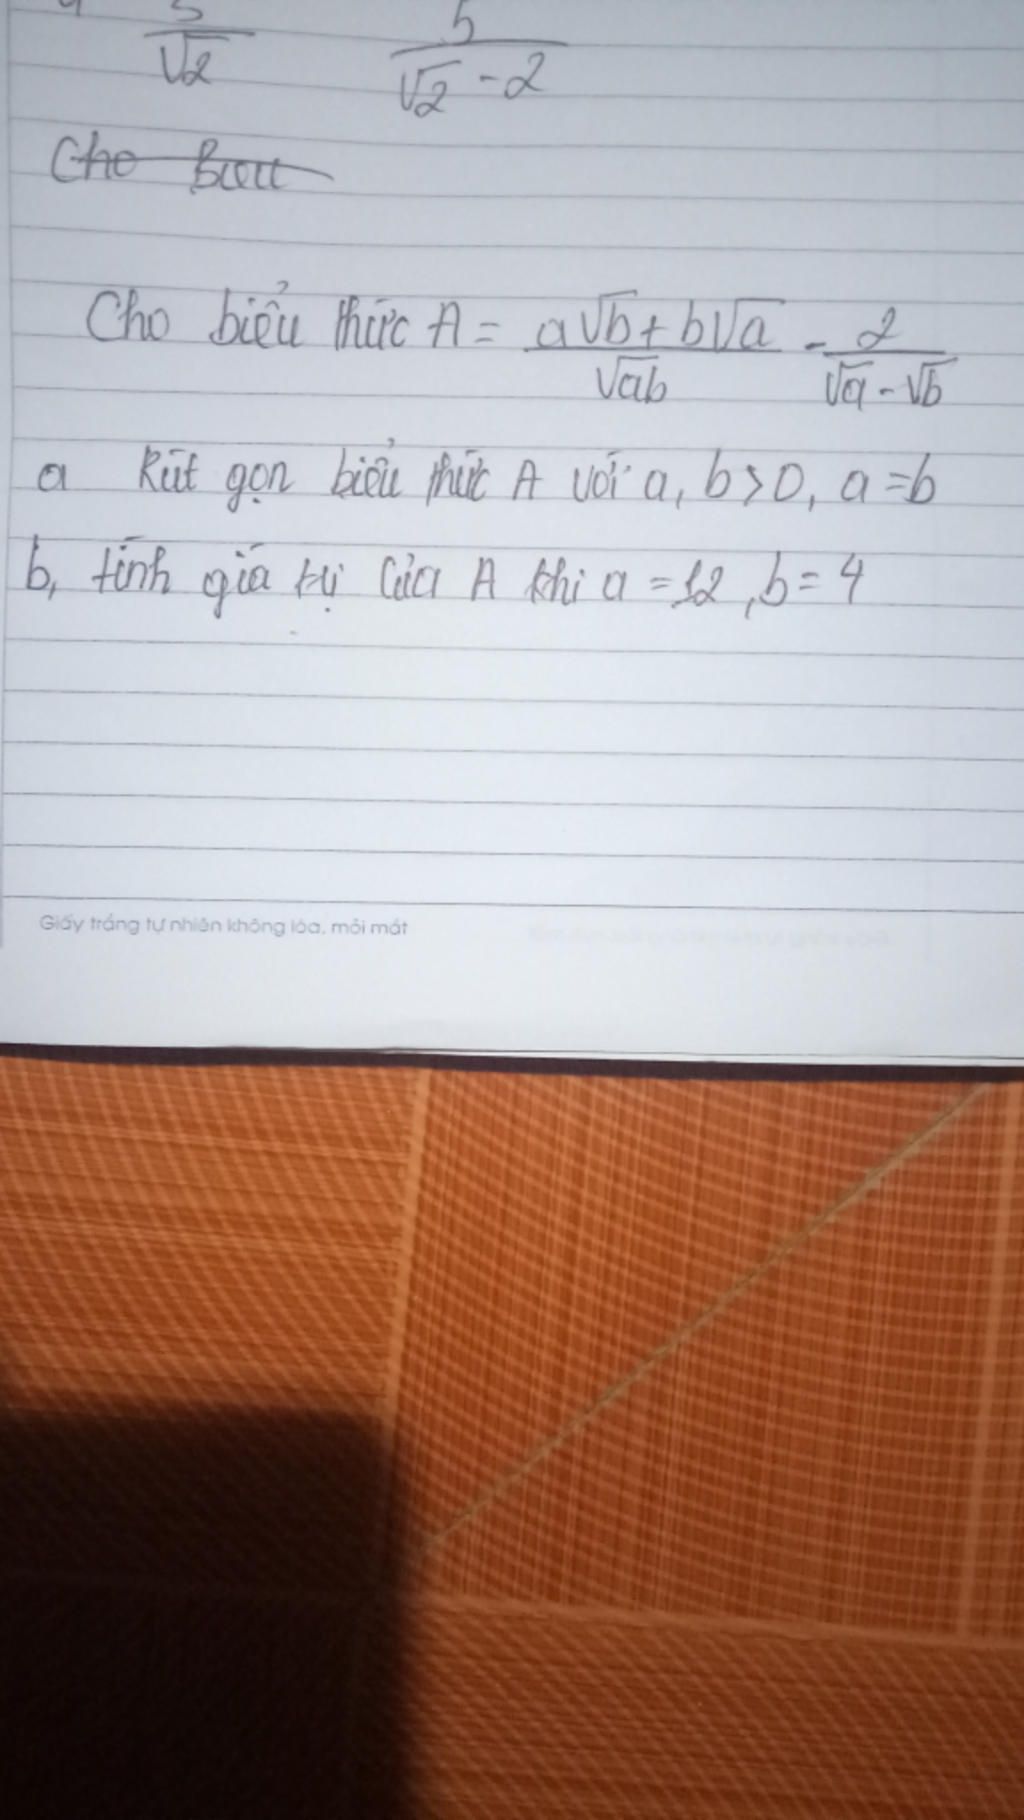 5/√2 5/(√2 - 2)
Cho Biêu
Cho biểu thức A = (a√b + b√a)/√ab - 2/(√a - √b)
a Rút gọn biểu thức A với a, b > 0, a = b
b, tính giá trị của A khi a = 12, b = 4
Giấy trắng tự nhiên không lóa, mỏi mắt